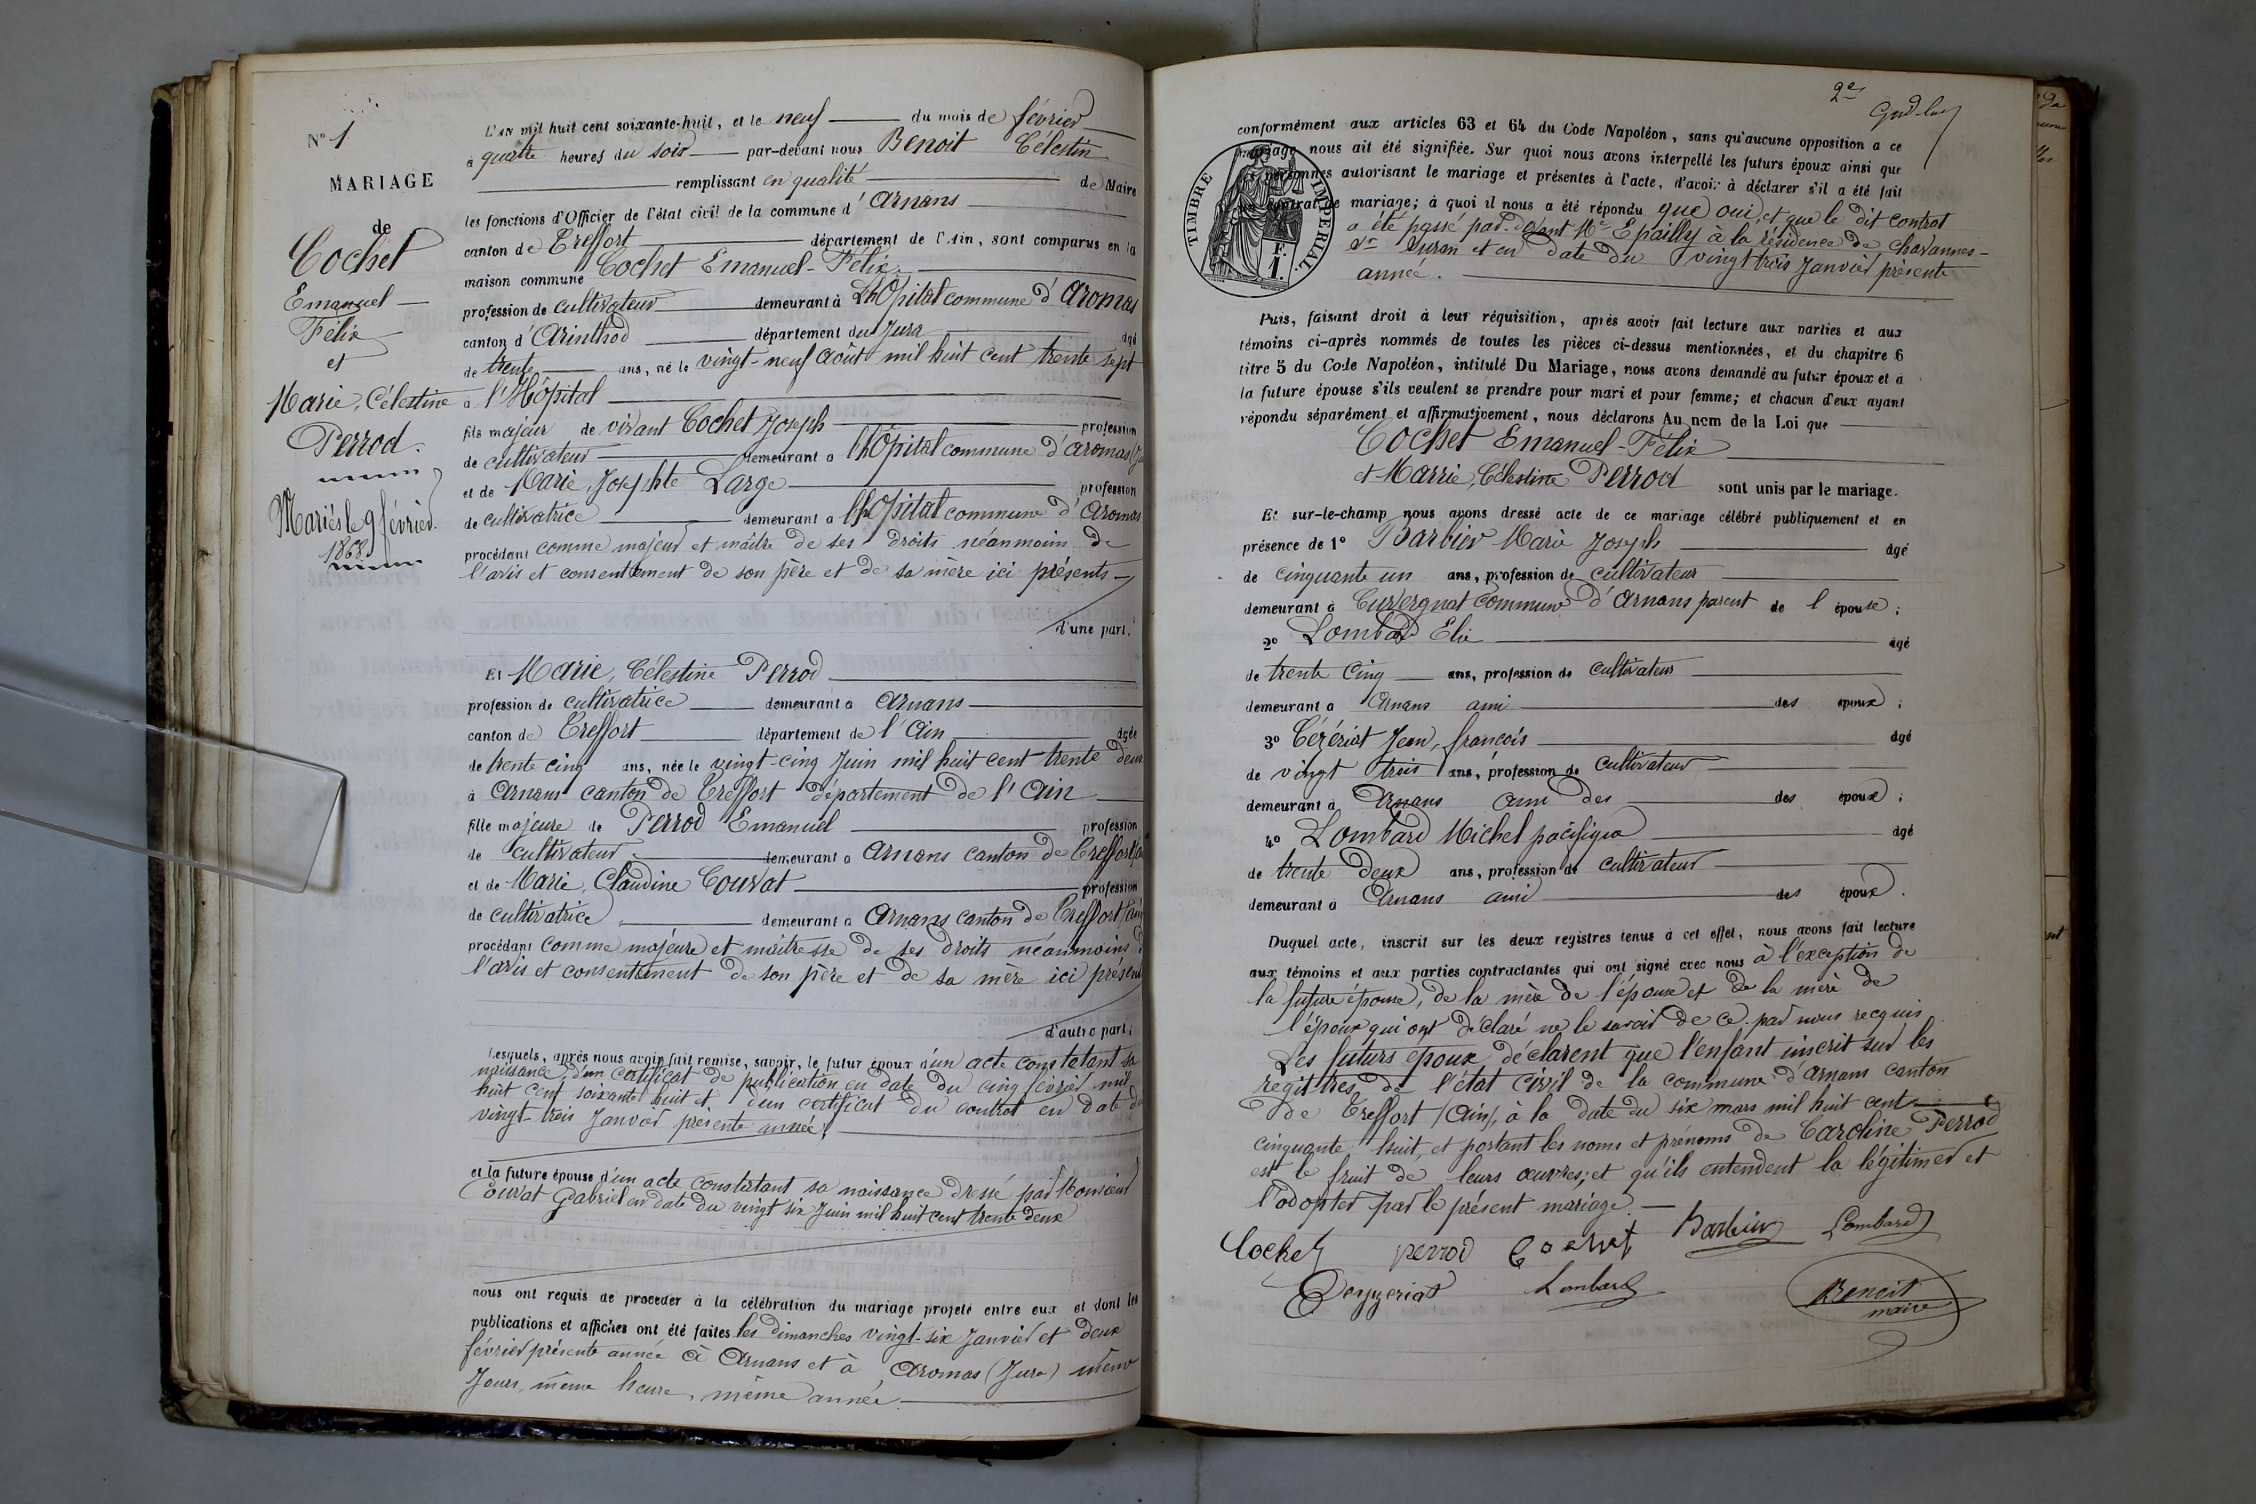 N° 1
MARIAGE
de
Cochet
Emanuel
Félix
et
Marie, Célestine
Perrod.
Mariés le 9 février
1868
L'an mil huit cent soixante-huit, et le neuf du mois de février
à quatre heures du soir par-devant nous Benoit Célestin
remplissant en qualité de Maire
les fonctions d'Officier de l'état civil de la commune d'Arnans
canton de Treffort département de l'Ain, sont comparus en la
maison commune Cochet Emanuel-Félix
profession de cultivateur demeurant à l'hôpital commune d'Aromas
canton d'Arinthod département du Jura âgé
de trente ans, né le vingt-neuf Août mil huit cent trente sept
à l'Hôpital
fils majeur de vivant Cochet Joseph profession
de cultivateur demeurant à lhôpital commune d'Aromas
et de Marie, Josephte Large profession
de cultivatrice demeurant à lhôpital commune d'Aromas
procédant comme majeur et maître de ses droits néanmoins de
l'avis et consentement de son père et de sa mère ici présents
d'une part.
Et Marie, Célestine Perrod
profession de cultivatrice demeurant à Arnans
canton de Treffort département de l'Ain âgée
de trente cinq ans, née le vingt-cinq Juin mil huit cent trente deux
à Arnans canton de Treffort département de l'Ain
fille majeure de Perrod Emanuel profession
de cultivateur demeurant à Arnans canton de Treffort
et de Marie, Claudine Couvat profession
de cultivatrice demeurant à Arnans canton de Treffort
procédant comme majeure et maîtresse de ses droits néanmoins
l'avis et consentement de son père et de sa mère ici présen
d'autre part;
Lesquels, après nous avoir fait remise, savoir, le futur époux d'un acte constatant sa
naissance, d'un certificat de publication en date du cinq février mil
huit cent soixante huit et d'un certificat du contrat en date du
vingt-trois Janvier présente année;
et la future épouse d'un acte constatant sa naissance dressé par Monsieur
Couvat Gabriel en date du vingt six Juin mil huit cent trente deux
nous ont requis de procéder à la célébration du mariage projeté entre eux et dont les
publications et affiches ont été faites les dimanches vingt-six Janvier et deux
février présente année à Arnans et à Aromas (Jura) même
Jours, même heure, même année.
2e
conformément aux articles 63 et 64 du Code Napoléon, sans qu'aucune opposition à ce
mariage nous ait été signifiée. Sur quoi nous avons interpellé les futurs époux ainsi que
personnes autorisant le mariage et présentes à l'acte, d'avoir à déclarer s'il a été fait
contrat de mariage; à quoi il nous a été répondu que oui, et que le dit contrat
a été passé par-devant Me Epailly à la résidence de Chavannes-
sr Suran et en date du vingt trois Janvier présente
année.
TIMBRE IMPERIAL.
F.
1.
Puis, faisant droit à leur réquisition, après avoir fait lecture aux parties et aux
témoins ci-après nommés de toutes les pièces ci-dessus mentionnées, et du chapitre 6
titre 5 du Code Napoléon, intitulé Du Mariage, nous avons demandé au futur époux et à
la future épouse s'ils veulent se prendre pour mari et pour femme; et chacun d'eux ayant
répondu séparément et affirmativement, nous déclarons Au nom de la Loi que
Cochet Emanuel-Félix
et Marrie, Célestine Perrod sont unis par le mariage.
Et sur-le-champ nous avons dressé acte de ce mariage célébré publiquement et en
présence de 1° Barbier Marie Joseph âgé
de cinquante un ans, profession de cultivateur
demeurant à Cuvergnat commune d'Arnans parent de l'épouse;
2° Lombard Elie âgé
de trente cinq ans, profession de cultivateur
demeurant à Arnans ami des époux;
3° Cézériat Jean, françois âgé
de vingt trois ans, profession de cultivateur
demeurant à Arnans ami des des époux;
4° Lombard Michel pacifique âgé
de trente deux ans, profession de cultivateur
demeurant à Arnans ami des époux.
Duquel acte, inscrit sur les deux registres tenus à cet effet, nous avons fait lecture
aux témoins et aux parties contractantes qui ont signé avec nous à l'exception de
la future épouse, de la mère de l'épouse et de la mère de
l'époux qui ont déclaré ne le savoir de ce par nous recquis
Les futurs époux déclarent que l'enfant inscrit sur les
regittres de l'état civil de la commune d'Arnans canton
de Treffort (Ain), à la date du six mars mil huit cent
cinquante huit, et portant les noms et prénoms de Caroline Perrod
est le fruit de leurs œuvres; et qu'ils entendent la légitimer et
l'adopter par le présent mariage.
Cochet perrod Couvat Barbier Lombard
Lombard Benoit
maire